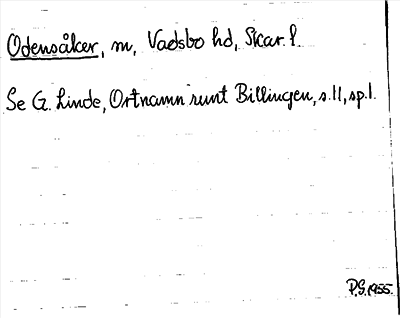 Odensåker, m, Vadsbo hd, Skar. l.
Se G. Linde, Ortnamn runt Billingen, s. 11, sp. 1.
P.G. 1955.